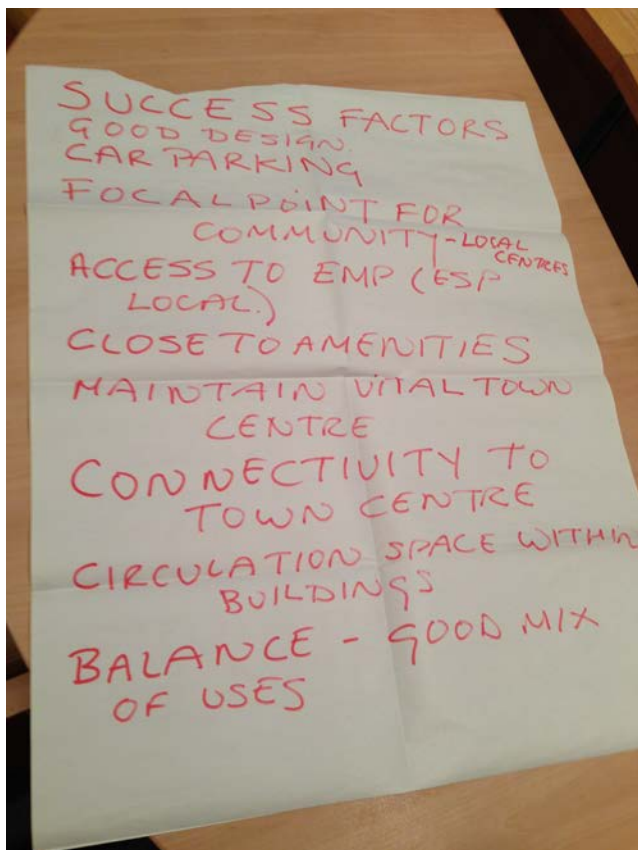 SUCCESS FACTORS
GOOD DESIGN.
CAR PARKING
FOCAL POINT FOR
COMMUNITY - LOCAL
CENTRES
ACCESS TO EMP (ESP
LOCAL)
CLOSE TO AMENITIES
MAINTAIN VITAL TOWN
CENTRE
CONNECTIVITY TO
TOWN CENTRE
CIRCULATION SPACE WITHIN
BUILDINGS
BALANCE - GOOD MIX
OF USES